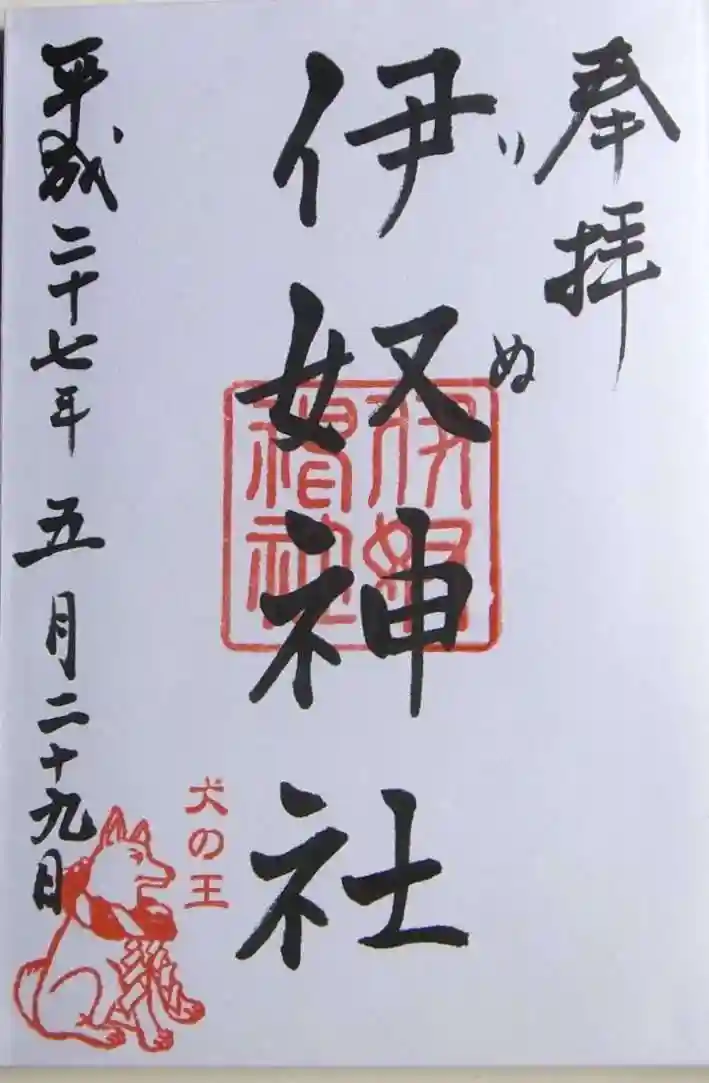 奉拝
伊奴神社
いぬ
伊奴
神社
犬の王
平成二十七年五月二十九日